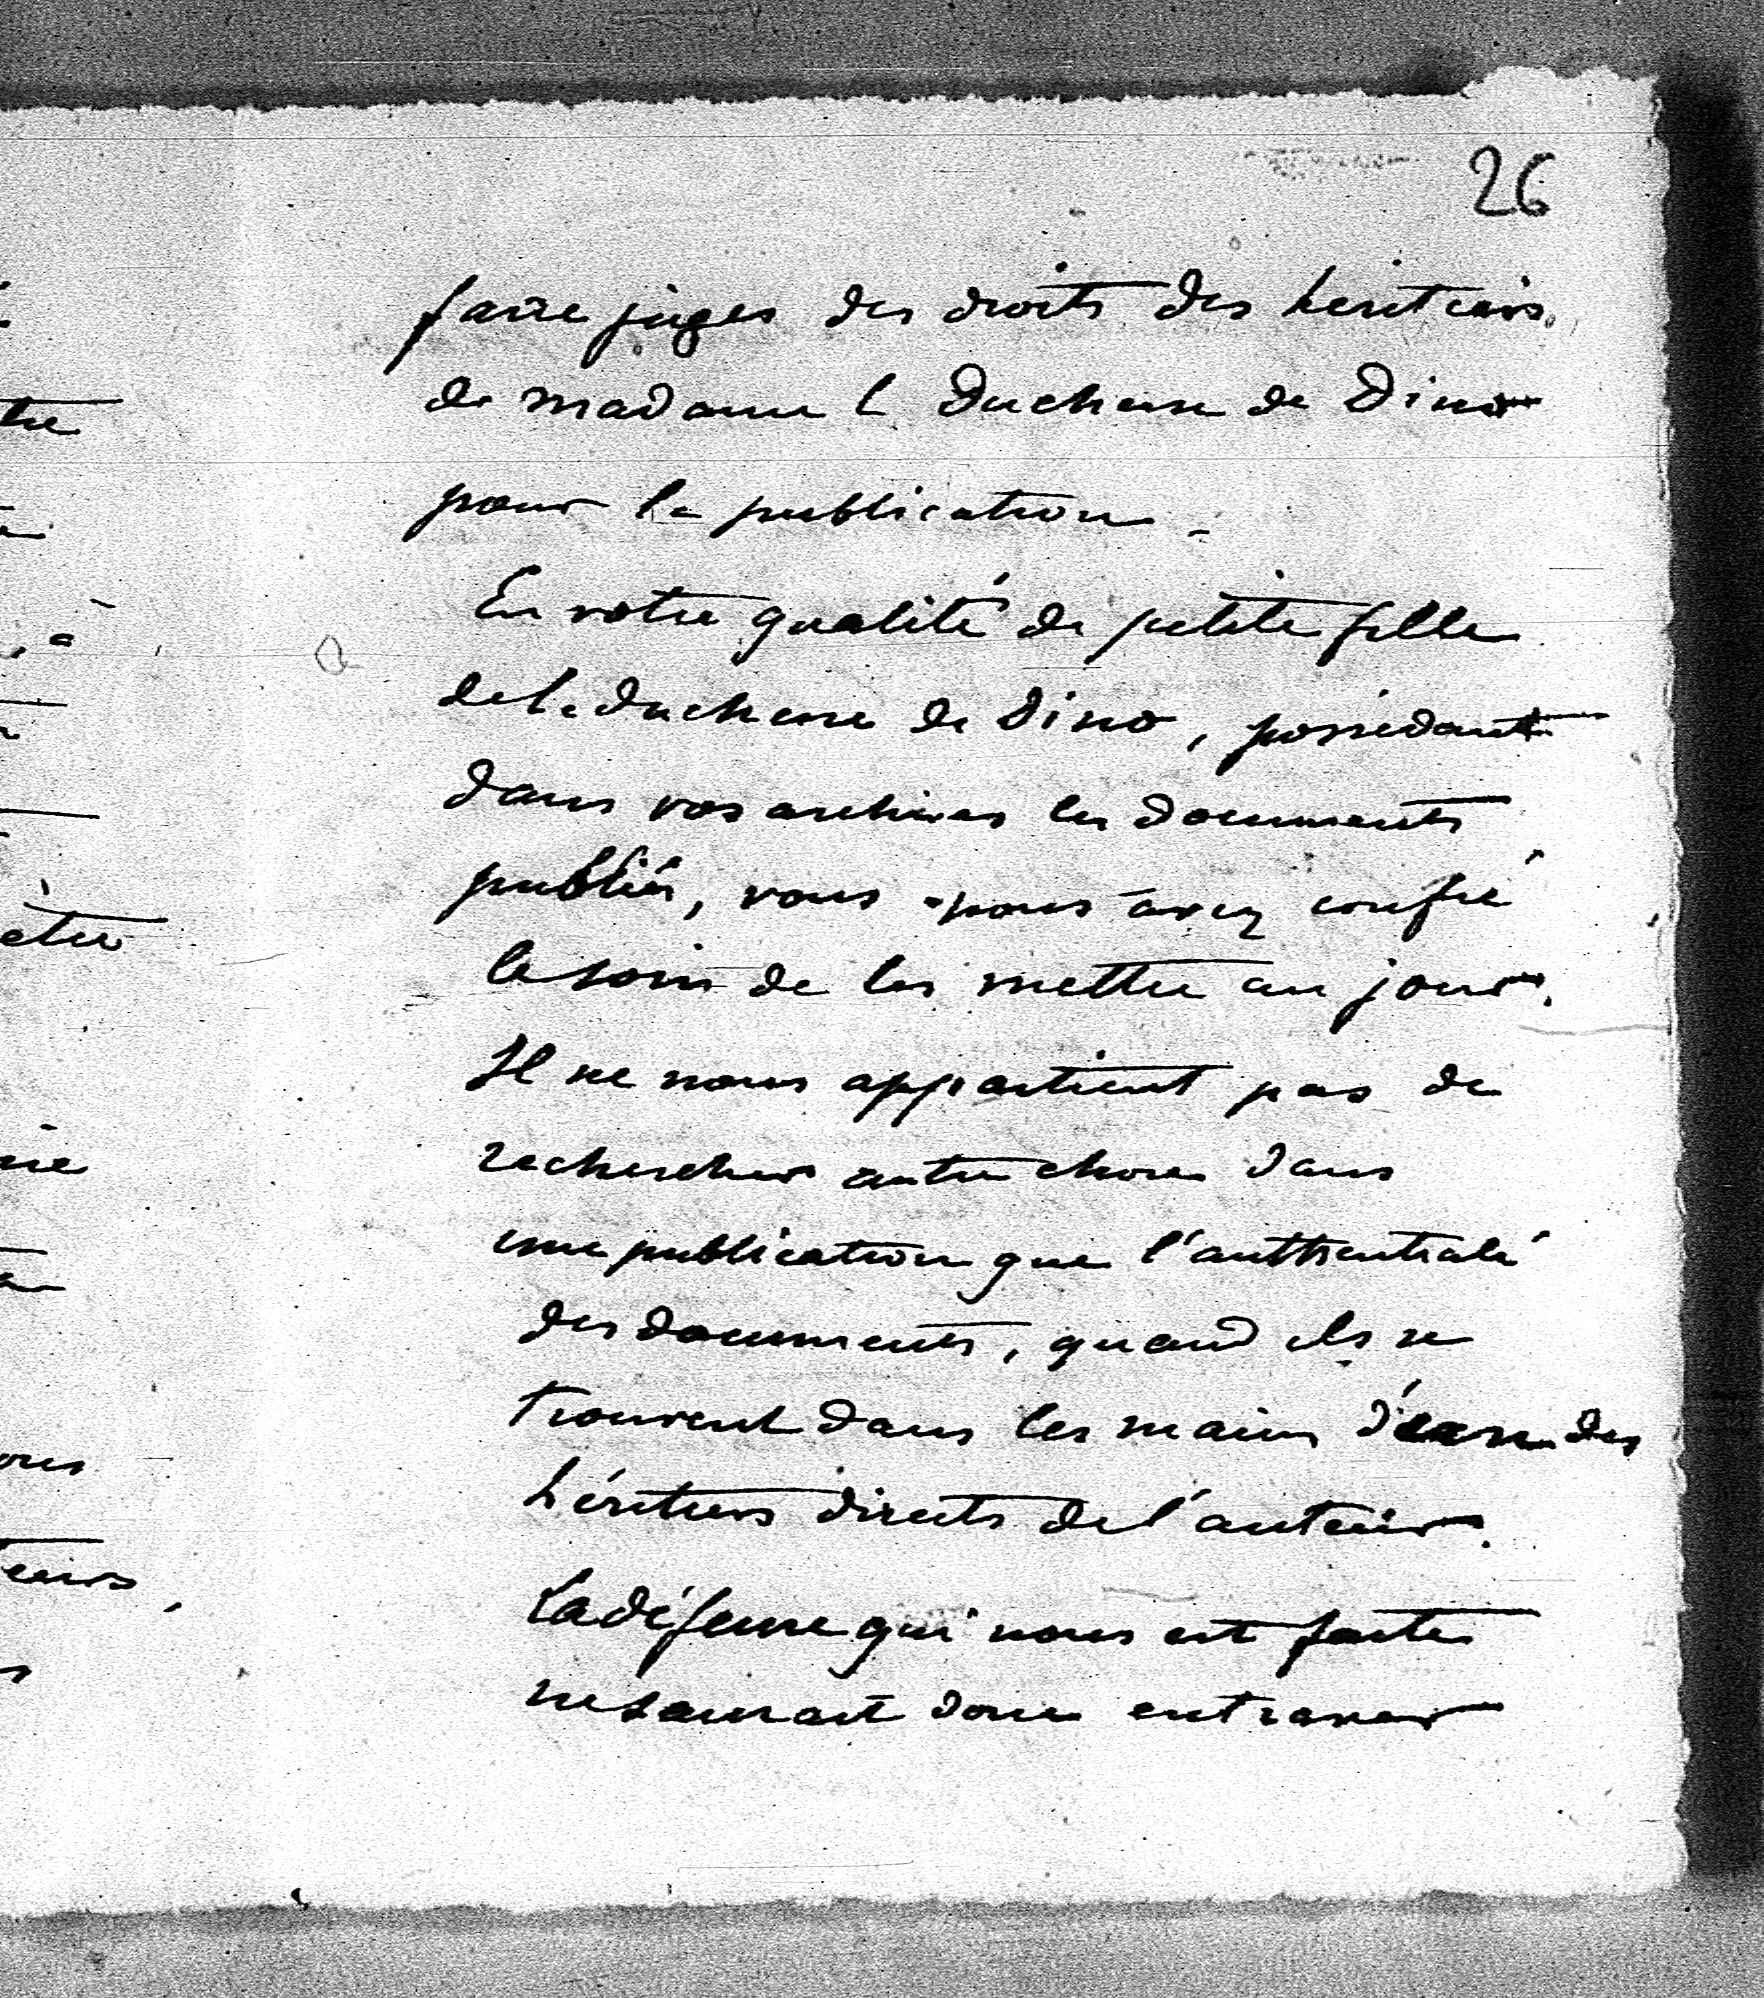 26
faire juges des droits des héritiers
de madame la Duchesse de Dino
pour la publication.
En votre qualité de petite fille
de la duchesse de Dino, possédant
dans vos archives les documents
publiés, vous nous avez confié
le soin de les mettre au jour.
Il ne nous appartient pas de
rechercher autre chose dans
une publication que l'authenticité
des documents, quand ils se
trouvent dans les mains d'un des
héritiers directs de l'auteur.
La défense qui nous est faite
ne saurait donc entraver